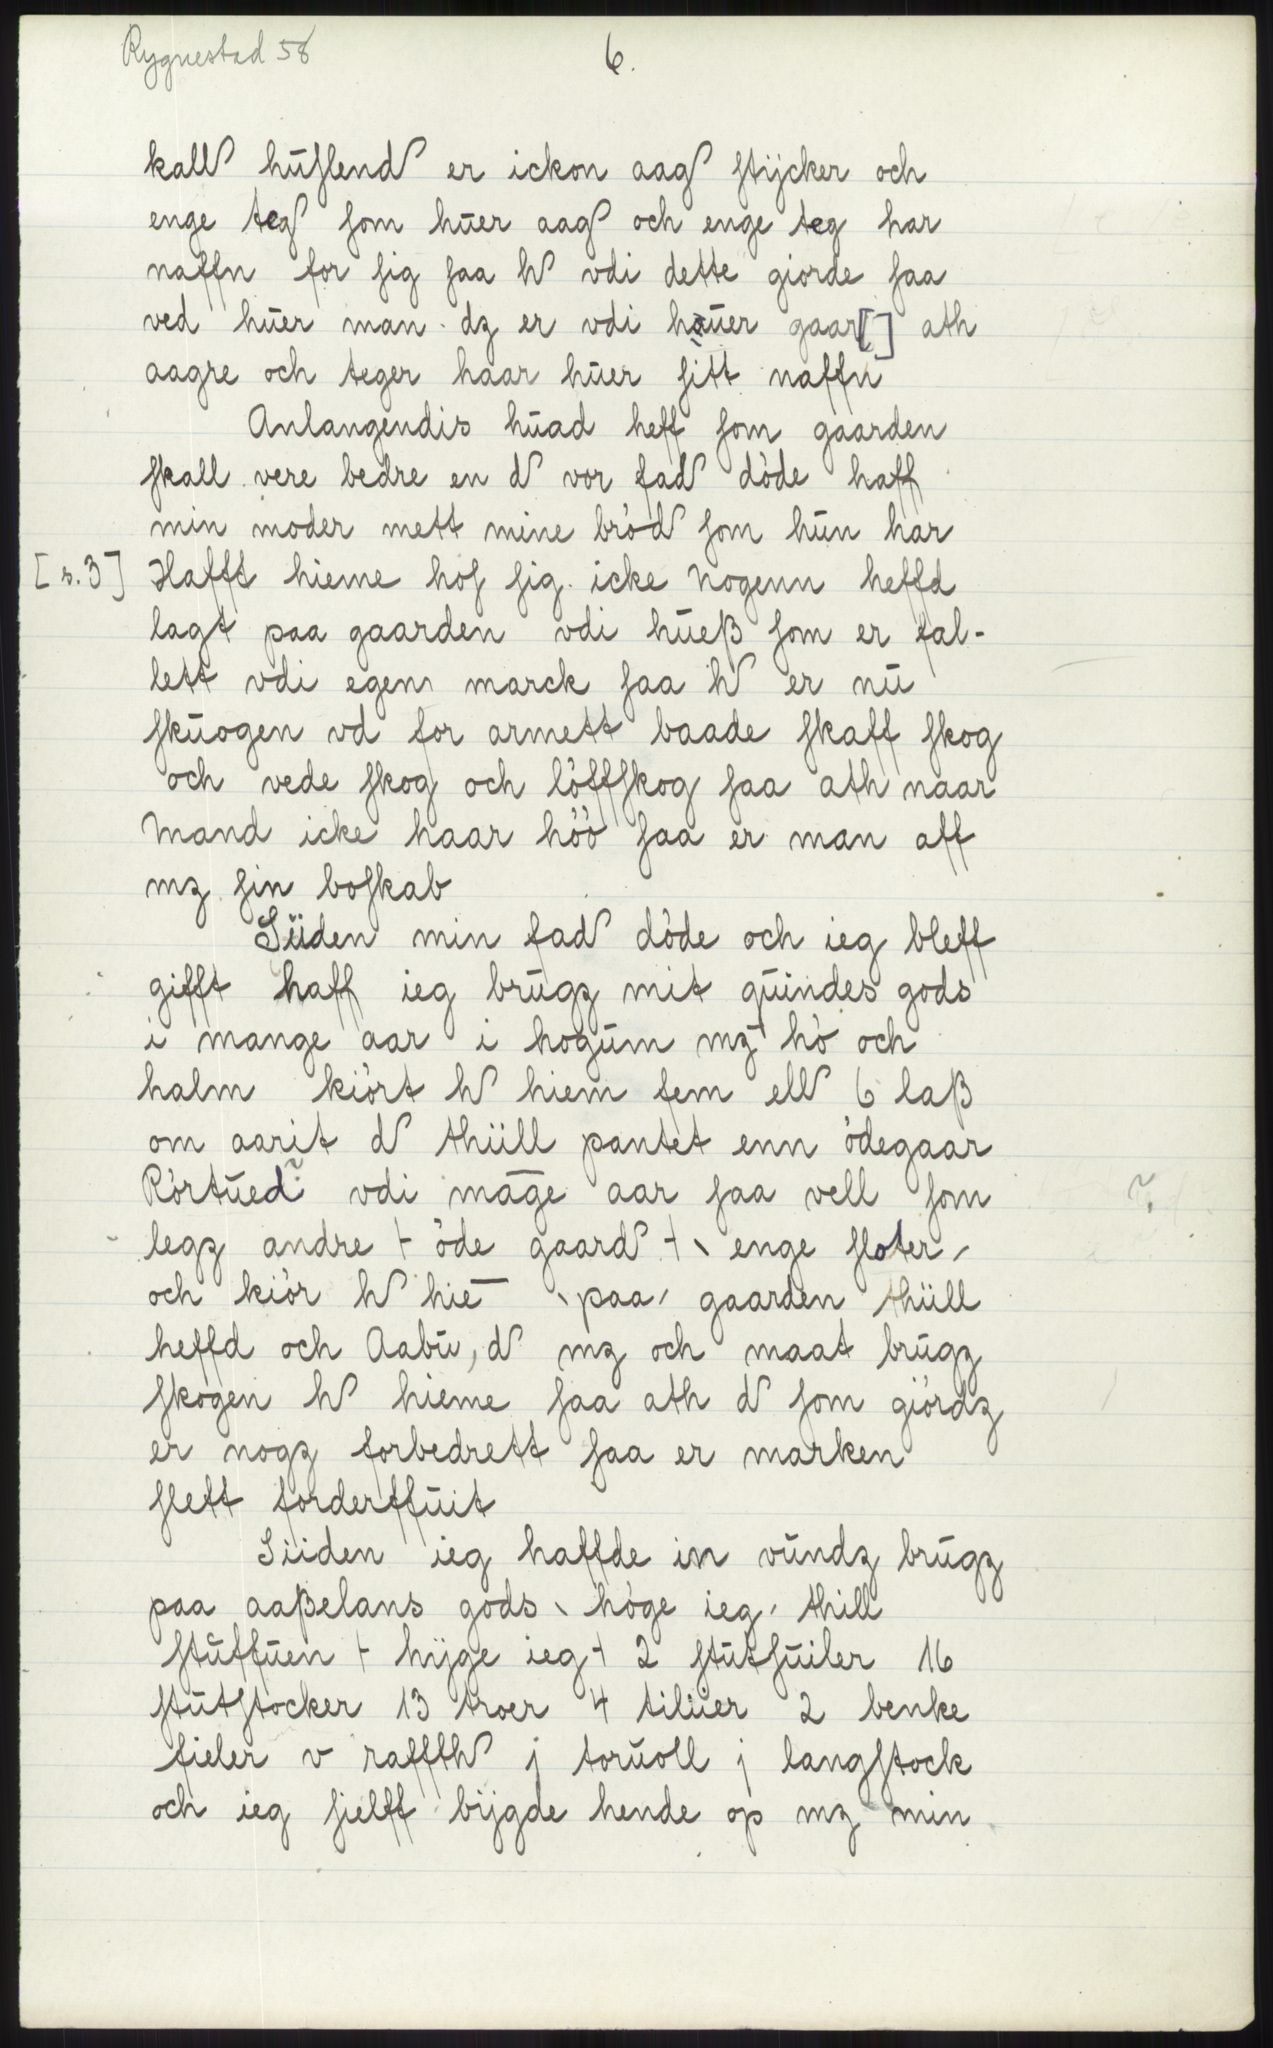 Rygnestad 58
6.
kall huslend er ickon aag stÿcker och
enge teg som huer aag och enge teg har
naffn for sig saa h vdi dette giorde saa
ved huer man dz er vdi hauer gaar[] ath
aagre och teger haar huer sitt naffn
Anlangendis huad heff som gaarden
skall vere bedre en d vor fad döde haff
min moder mett mine bröd som hun har
[s. 3] Hafft hieme hos sig icke Nogenn heffd
lagt paa gaarden vdi hueß som er fal-
lett vdi egen marck saa h er nu
skuogen vd for armett baade skaff skog
och vede skog och löffskog saa ath naar
Mand icke haar höö saa er man aff
mz sin boskab
Süden min fad döde och ieg bleff
gifft haff ieg brugz mit quindes gods
i mange aar i hogum mz hö och
halm kiört h hiem fem ell 6 laß
om aarit d thüll pantet enn ödegaar
Rörtued vdi māge aar saa vell som
legz andre + öde gaard + ˋ enge sloterˊ
och kiör h hiē ˋpaaˊ gaarden thüll
heffd och Aabu, d mz och maat brugz
skogen h hieme saa ath d som giördz
er nogz forbedrett saa er marken
slett forderffuit
Siiden ieg haffde in vundz brugz
paa aaßelans gods ˋhöge iegˊ thill
stuffuen + hÿge ieg + 2 stutsuiler 16
stutstocker 13 troer 4 tiluer 2 benke
fieler v raffth j toruoll j langstock
och ieg sielff bÿgde hende op mz min